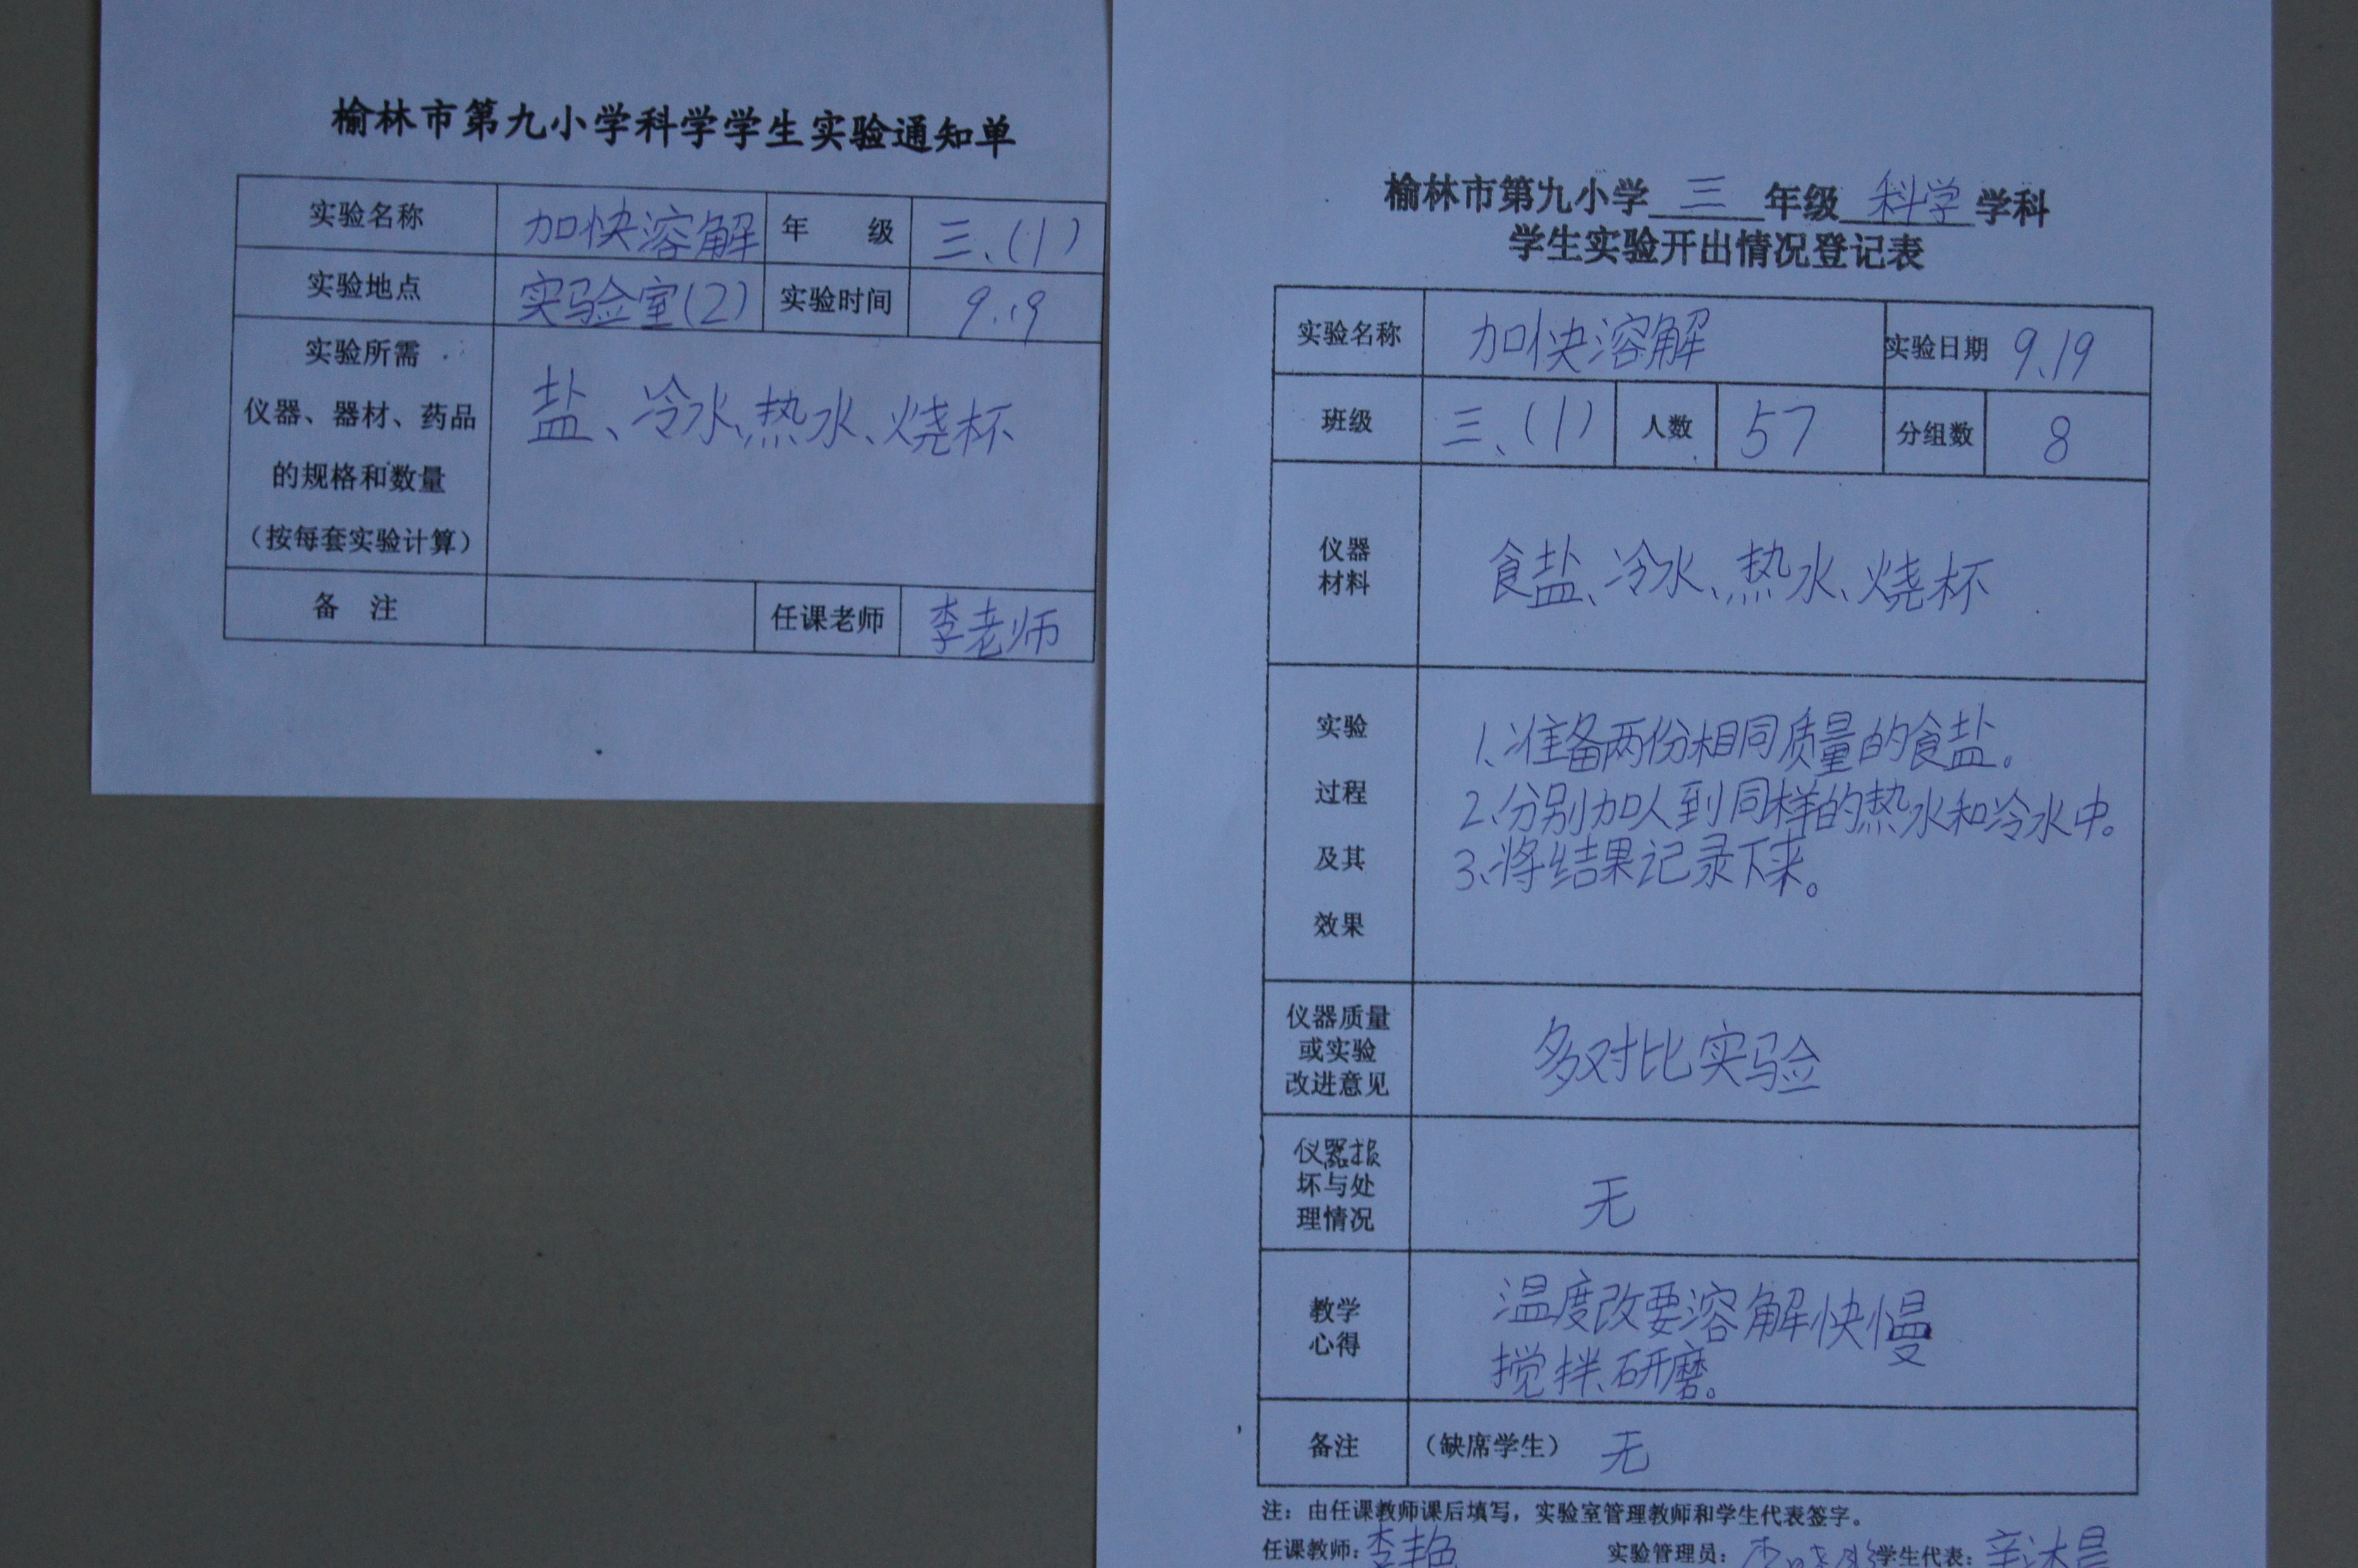 榆林市第九小学科学学生实验通知单
实验名称 加快溶解 年 级 三、(1)
实验地点 实验室(2) 实验时间 9.19
实验所需
仪器、器材、药品
的规格和数量
(按每套实验计算)
盐、冷水、热水、烧杯
备 注 任课老师 李老师
榆林市第九小学 三 年级 科学 学科
学生实验开出情况登记表
实验名称 加快溶解 实验日期 9.19
班级 三、(1) 人数 57 分组数 8
仪器
材料
食盐、冷水、热水、烧杯
实验
过程
及其
效果
1、准备两份相同质量的食盐。
2、分别加人到同样的热水和冷水中。
3、将结果记录下来。
仪器质量
或实验
改进意见
多对比实验
仪器损
坏与处
理情况
无
教学
心得
温度改要溶解快慢
搅拌、研磨。
备注 (缺席学生) 无
注：由任课教师课后填写，实验室管理教师和学生代表签字。
任课教师: 李艳 实验管理员: 学生代表: